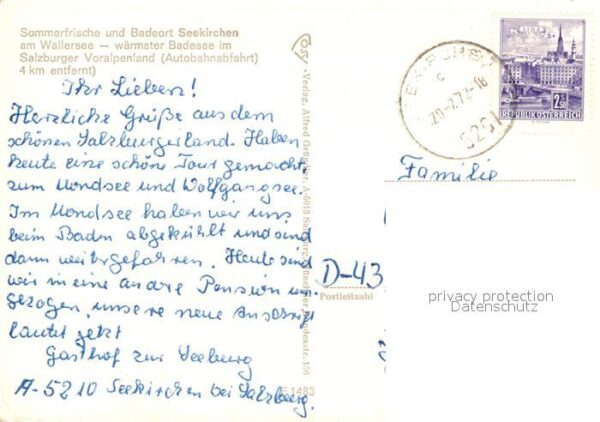 Sommerfrische und Badeort Seekirchen
am Wallersee — wärmster Badesee im
Salzburger Voralpenland (Autobahnabfahrt)
4 km entfernt)
Ihr Lieben!
Herzliche Grüße aus dem
schönen Salzburgerland. Haben
heute eine schöne Tour gemacht
zum Mondsee und Wolfgangsee.
Im Mondsee haben wir uns
beim Baden abgekühlt und sind
dann weitergefahren. Heute sind
wir in eine andre Pension um-
gezogen, unsere neue Anschrift
lautet jetzt
Gasthof zur Seeburg
A-5210 Seekirchen bei Salzburg.
Verlag, Alfred
A-5013 Salzburg
1483
LINZ
2.50
REPUBLIK ÖSTERREICH
SEEKIRCHEN
c
20.-7.72-18
5201
Familie
D-43
Postleitzahl
privacy protection
Datenschutz